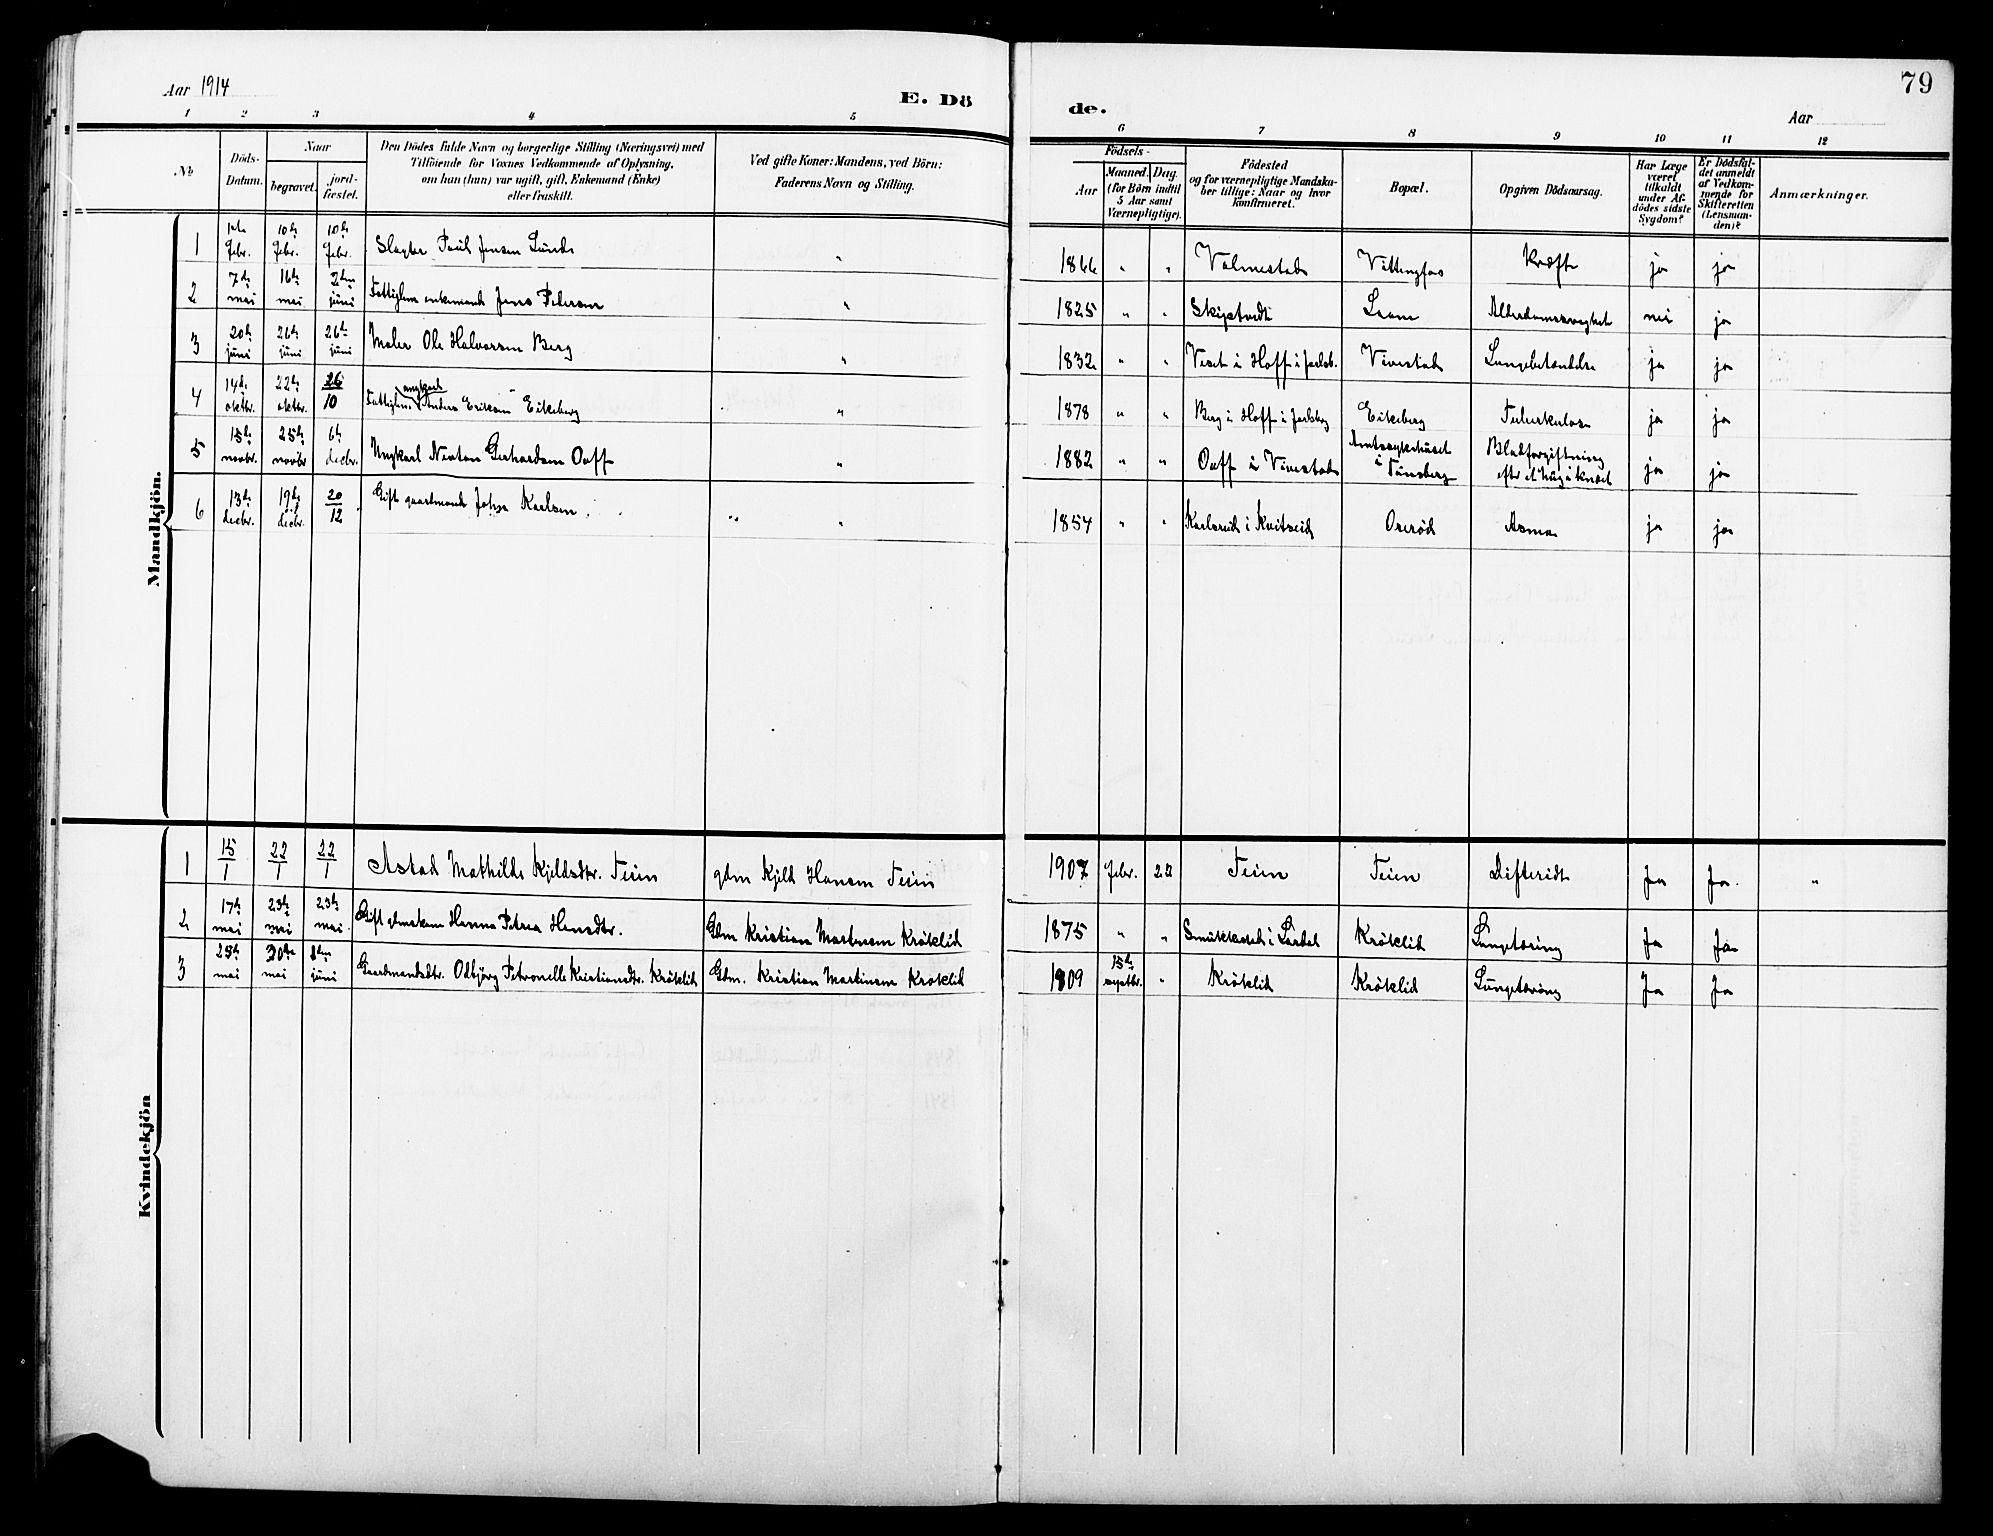 79
Aar 1914
E. Dö
de.
Aar
1 2 3 4 5 6 7 8 9 10 11 12
No
Döds-Datum.
Naar
begravet.
jord-fæstet.
Den Dödes fulde Navn og borgerlige Stilling (Næringsvei) med
Tilföiende for Voxnes Vedkommende af Oplysning,
om han (hun) var ugift, gift, Enkemand (Enke)
eller fraskilt.
Ved gifte Koner: Mandens, ved Börn:
Faderens Navn og Stilling.
Födsels-
Aar
Maaned. Dag.
(for Börn indtil
5 Aar samt
Værnepligtige).
Födested
og for værnepligtige Mandska-
ber tillige: Naar og hvor
konfirmeret.
Bopæl.
Opgiven Dödsaarsag.
Har Læge
været
tilkaldt
under Af-
dödes sidste
Sygdom?
Er Dödsfal-
det anmeldt
af Vedkom-
mende for
Skifteretten
(Lensman-
den)?
Anmærkninger.
Mandkjön.
1 1ste febr. 10de febr. 10de febr. Slagter Paul Jensen Lunde " 1866 " " Valmestad Vittingfos Kræft ja ja
2 7de mai 16de mai 2den juni Fattiglem enkemand Jens Pedersen " 1825 " " Skiptvedt Alderdomssvaghet nei ja
3 20de juni 26de juni 26de juni Maler Ole Halvorsen Berg " 1832 " " i Hoff i Jarlsb. Vivestad Lungebetændelse ja ja
4 14de oktbr. 22de oktbr. 26/10 Fattiglem ungkarl Anders Eriksen Eikeberg " 1878 " " Berg i Hoff i Jarlsberg Eikeberg Tuberkulose ja ja
5 15de novbr. 25de novbr. 6te decbr. Ungkarl Newton Gerhardsen Ouff " 1882 " " Ouff i Vivestad Amtssykehuset i Tønsberg Blodforgiftning efter et hug i knæet ja ja
6 13de decbr. 19de decbr. 20/12 Gift gaardmand Johan Karlsen " " 1854 " " i Kvitseid Oserød Asma ja ja
Kvindekjön
1 15/1 22/1 22/1 Astad Mathilde Kjeldsdtr. Feien gdm Kjeld Hansen Feien 1907 febr. 22 Feien Feien Difteridt Ja Ja. "
2 17de mai 23de mai 23de mai. Gift gdmskone Hanna Petrea Hansdtr. Gdm Kristian Martinsen Krøklid 1875 " " i Lardal Krøklid Lungetæring Ja Ja
3 25de mai 30te mai juni Gaardmandsdtr. Odbjörg Petronelle Kristiansdtr. Krøklid Gdm. Kristian Martinsen Krøklid 1909 15de septbr. " Krøklid Krøklid Lungetæring Ja Ja